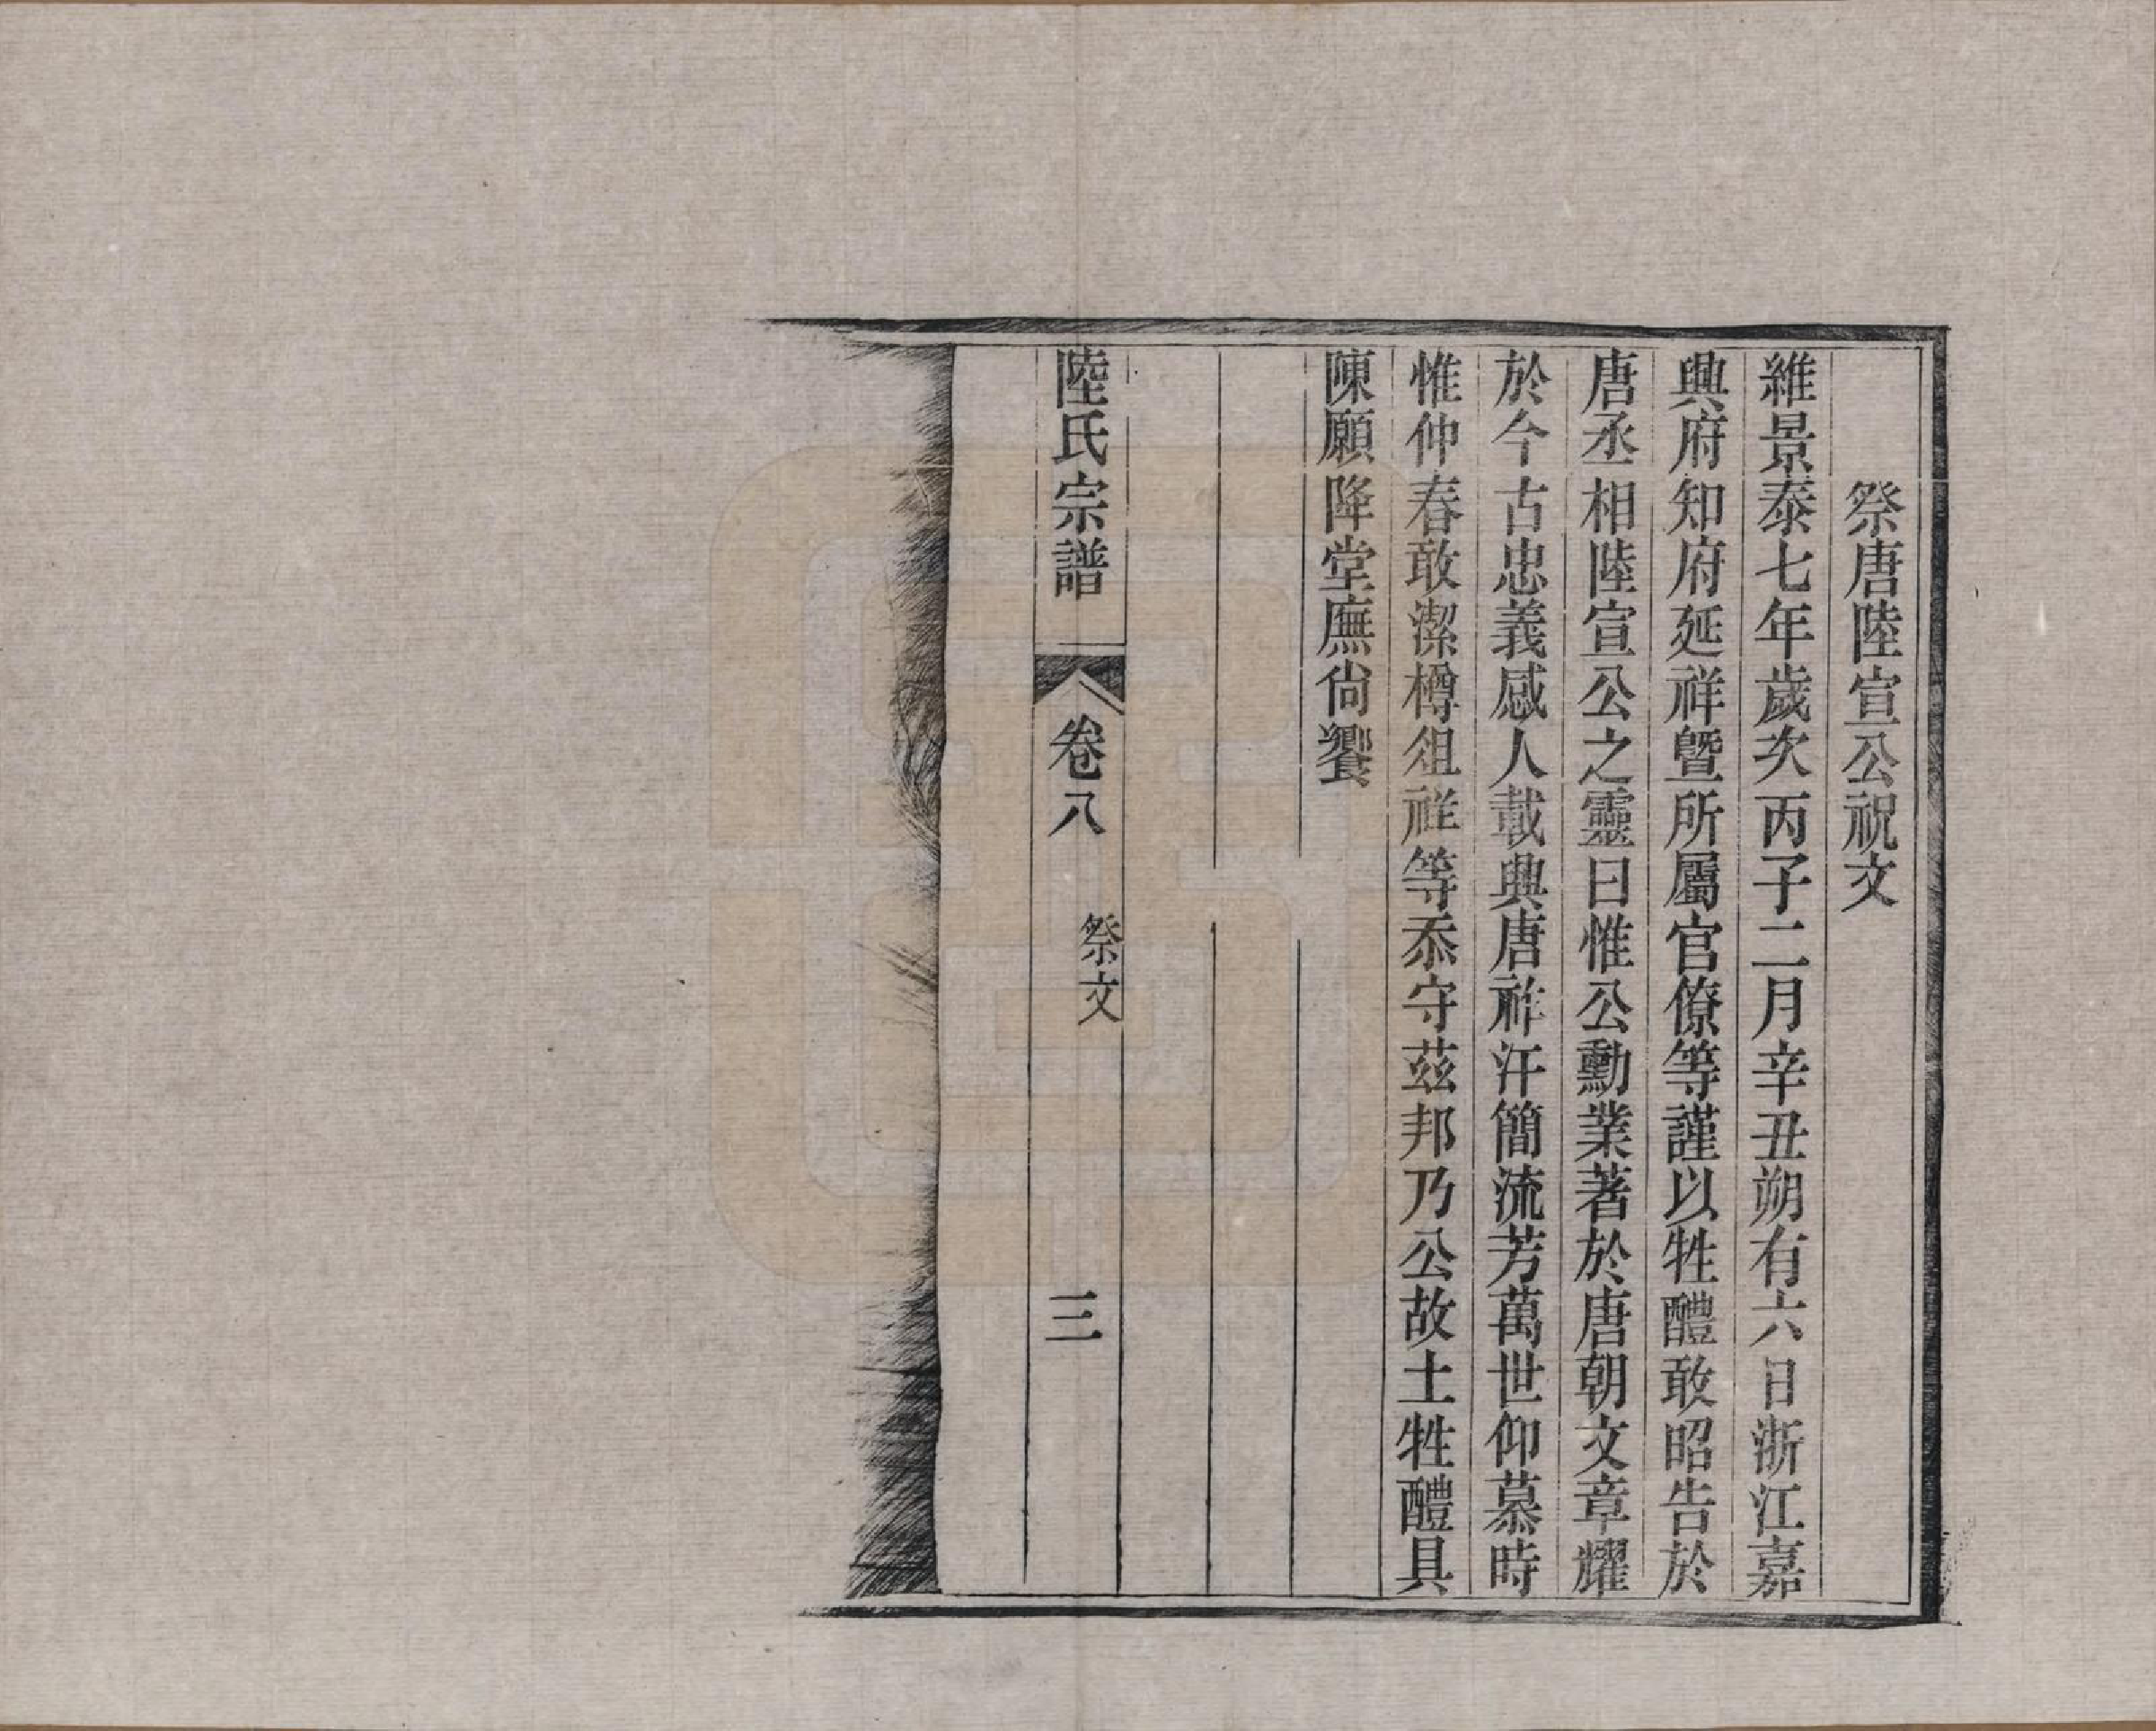 祭唐陸宣公祝文
維景泰七年歲次丙子二月辛丑朔有六日浙江嘉
興府知府延祥曁所屬官僚等謹以牲醴敢昭告於
唐丞相陸宣公之靈曰惟公勳業著於唐朝文章耀
於今古忠義感人載興唐祚汗簡流芳萬世仰慕時
惟仲春敢潔樽俎祥等忝守茲邦乃公故土牲醴具
陳願降堂廡尙饗
陸氏宗譜
卷八
祭文
三